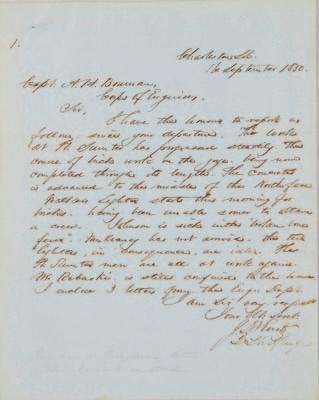 1.
Charleston S.C.
16 September 1850.
Capt. A. H. Bowman,
Corps of Engineers,
Sir,
I have the honour to report as
follows since your departure. The work
at Ft. Sumter has progressed steadily. One
course of brick work on the gorge being now
completed through its length. The concrete
is advanced to the middle of the North face
lighter starts this morning for
bricks. having been unable sooner to obtain
a crew. Johnson is sick with broken bone
fever. has not arrived. the two
lighters, in consequence, are idle. The
Ft. Sumter men are all at work again.
Mr. is still confined to the house
I enclose 2 letters from the Engr. Dept.
I am Sir, very respect
Your Obt. Servt.